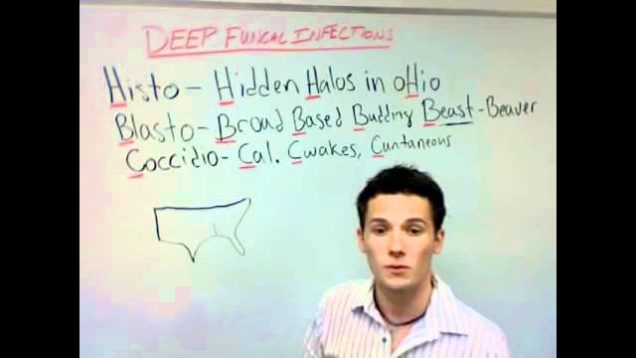 DEEP FUNGAL INFECTIONS
Histo - Hidden Halos in oHio
Blasto - Broad Based Budding Beast - Beaver
Coccidio - Cal. Cwakes, Cuntaneous